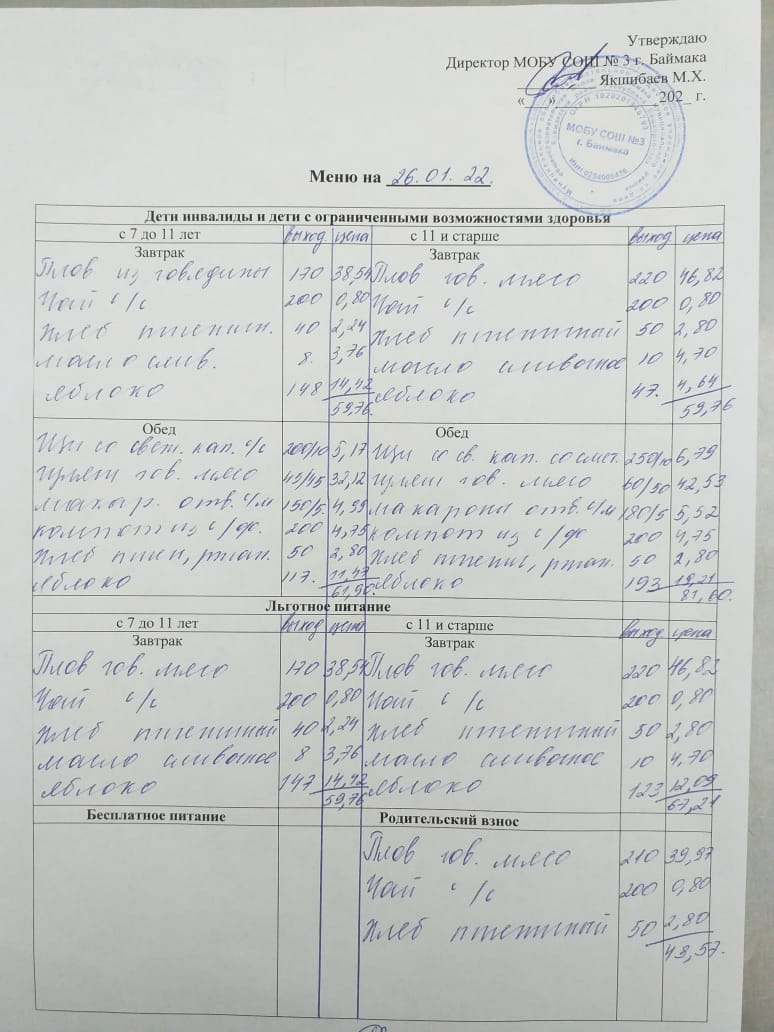 Утверждаю
Директор МОБУ СОШ № 3 г. Баймака
Якшибаев М.Х.
«___»______________202_ г.
МОБУ СОШ №3
г. Баймака
Меню на 26.01.22.
Дети инвалиды и дети с ограниченными возможностями здоровья
с 7 до 11 лет выход цена с 11 и старше выход цена
Завтрак Завтрак
Плов из говядины 170 38,54 Плов гов. мясо 220 46,82
Чай с/с 200 0,80 Чай с/с 200 0,80
Хлеб пшенич. 40 2,24 Хлеб пшеничный 50 2,80
масло слив. 8. 3,76 масло сливочное 10 4,70
яблоко 148 14,42 яблоко 47. 4,64
59,76. 59,76
Обед Обед
Щи со свеж. кап. с/с 200/10 5,17 Щи со св. кап. со смет. 250/10 6,79
гуляш гов. мясо 45/45 32,12 гуляш гов. мясо 60/50 42,53
макар. отв. с/м 150/5. 4,59 макарони отв. с/м 180/5 5,52
компот из с/фр. 200 4,75 компот из с/фр 200 4,75
Хлеб пшен, ржан. 50 2,80 Хлеб пшенич, ржан. 50 2,80
яблоко 117. 11,47 яблоко 193 19,21
61,90. 81,60.
Льготное питание
с 7 до 11 лет выход цена с 11 и старше выход цена
Завтрак Завтрак
Плов гов. мясо 170 38,54 Плов гов. мясо 220 46,82
Чай с/с 200 0,80 Чай с/с 200 0,80
Хлеб пшеничный 40 2,24 Хлеб пшеничный 50 2,80
масло сливочное 8 3,76 масло сливочное 10 4,70
яблоко 147 14,42 яблоко 123 12,09
59,76 67,21
Бесплатное питание Родительский взнос
Плов гов. мясо 210 39,97
Чай с/с 200 0,80
Хлеб пшеничный 50 2,80
43,57.